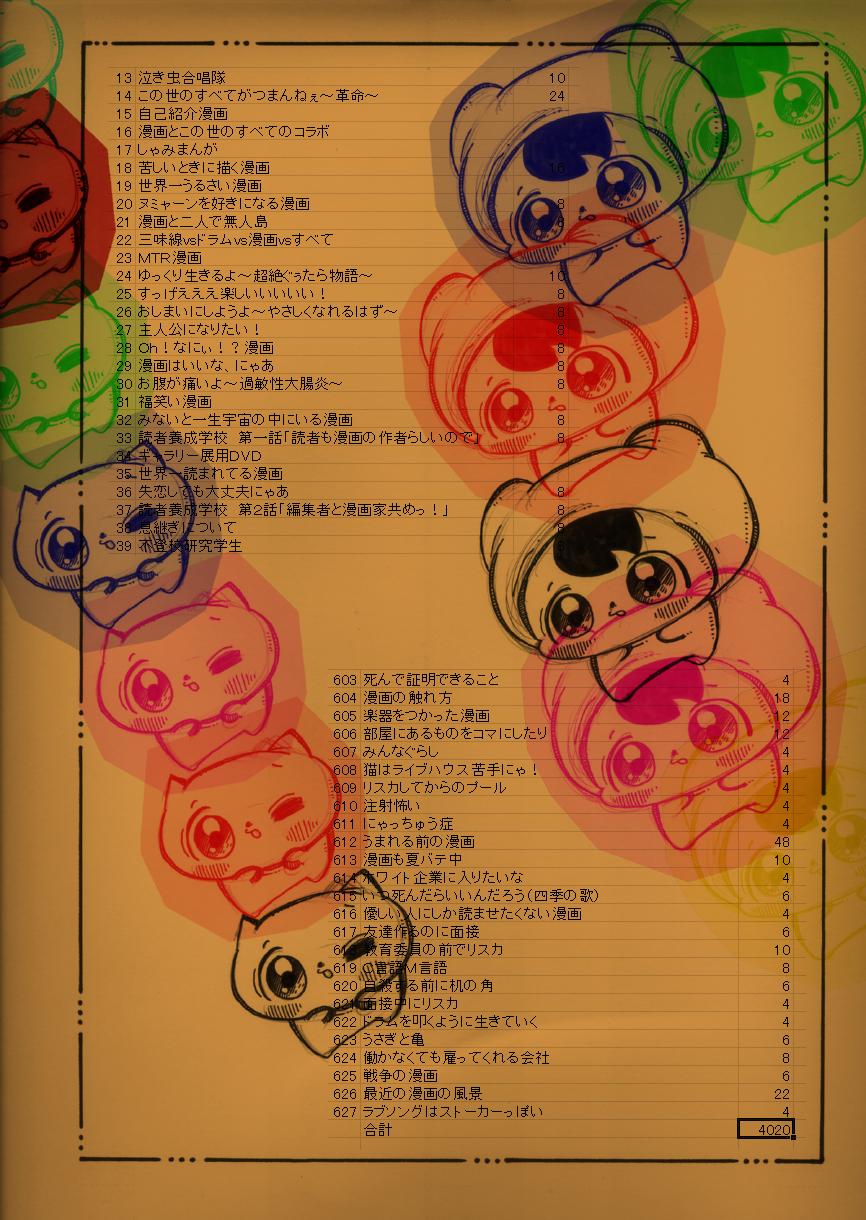 13 泣き虫合唱隊 10
14 この世のすべてがつまんねぇ～革命～ 24
15 自己紹介漫画
16 漫画とこの世のすべてのコラボ
17 しゃみまんが
18 苦しいときに描く漫画 16
19 世界一うるさい漫画
20 ヌミャーンを好きになる漫画 8
21 漫画と二人で無人島 8
22 三味線vsドラムvs漫画vsすべて
23 MTR漫画
24 ゆっくり生きるよ～超絶ぐぅたら物語～ 10
25 すっげえええ楽しいいいいい！ 8
26 おしまいにしようよ～やさしくなれるはず～ 8
27 主人公になりたい！ 8
28 Oh！なにぃ！？漫画 8
29 漫画はいいな、にゃあ 8
30 お腹が痛いよ～過敏性大腸炎～ 8
31 福笑い漫画
32 みないと一生宇宙の中にいる漫画 8
33 読者養成学校　第一話「読者も漫画の作者らしいので」 8
34 ギャラリー展用DVD
35 世界一読まれてる漫画
36 失恋しても大丈夫にゃあ 8
37 読者養成学校　第2話「編集者と漫画家共めっ！」 8
38 息継ぎについて
39 不登校研究学生
603 死んで証明できること 4
604 漫画の触れ方 18
605 楽器をつかった漫画 12
606 部屋にあるものをコマにしたり 12
607 みんなぐらし 4
608 猫はライブハウス苦手にゃ！ 4
609 リスカしてからのプール 4
610 注射怖い 4
611 にゃっちゅう症 4
612 うまれる前の漫画 48
613 漫画も夏バテ中 10
614 ホワイト企業に入りたいな 4
615 いつ死んだらいいんだろう(四季の歌) 6
616 優しい人にしか読ませたくない漫画 4
617 友達作るのに面接 6
618 教育委員の前でリスカ 10
619 C言語M言語 8
620 自殺する前に机の角 6
621 面接中にリスカ 4
622 ドラムを叩くように生きていく 4
623 うさぎと亀 6
624 働かなくても雇ってくれる会社 8
625 戦争の漫画 6
626 最近の漫画の風景 22
627 ラブソングはストーカーっぽい 4
合計 4020